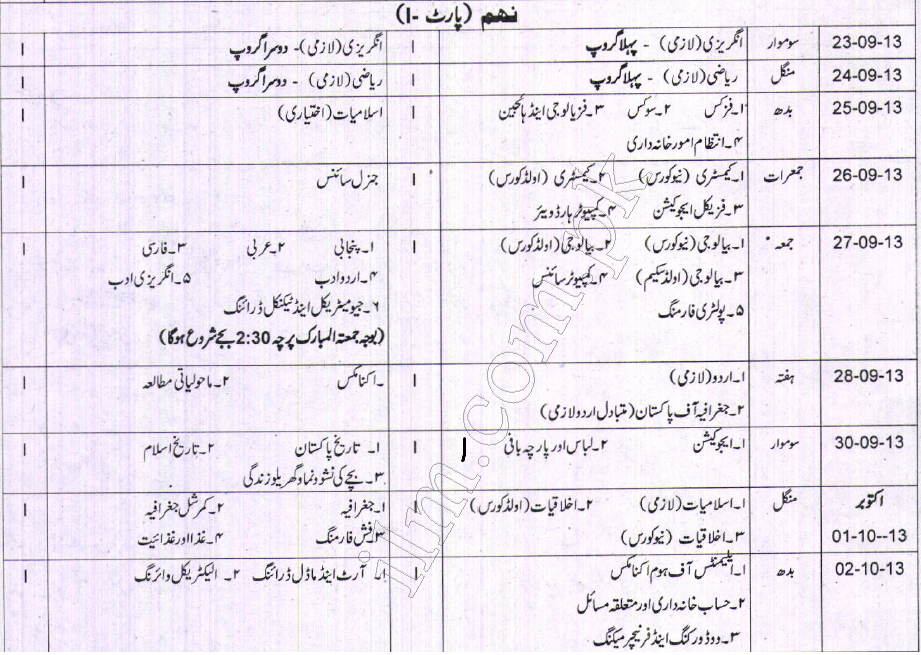 نہم (پارٹ -I)
23-09-13 سوموار انگریزی (لازمی) - پہلا گروپ I انگریزی (لازمی)- دوسرا گروپ I
24-09-13 منگل ریاضی (لازمی) - پہلا گروپ I ریاضی (لازمی) - دوسرا گروپ I
25-09-13 بدھ ۱۔فزکس ۲۔سوکس ۳۔فزیالوجی اینڈ ہائجین I اسلامیات (اختیاری) I
۴۔انتظام امور خانہ داری
26-09-13 جمعرات ۱۔کیمسٹری (نیو کورس) ۲۔کیمسٹری (اولڈ کورس) I جنرل سائنس I
۳۔فزیکل ایجوکیشن ۴۔کمپیوٹر ہارڈ ویئر
27-09-13 جمعہ ۱۔بیالوجی (نیو کورس) ۲۔بیالوجی (اولڈ کورس) I ۱۔پنجابی ۲۔عربی ۳۔فارسی I
۳۔بیالوجی (اولڈ سکیم) ۴۔کمپیوٹر سائنس ۴۔اردو ادب ۵۔انگریزی ادب
۵۔پولٹری فارمنگ ۶۔جیومیٹریکل اینڈ ٹیکنکل ڈرائنگ
(بوجہ جمعتہ المبارک پرچہ 2:30 بجے شروع ہو گا)
28-09-13 ہفتہ ۱۔اردو (لازمی) I ۔اکنامکس ۲۔ماحولیاتی مطالعہ I
۲۔جغرافیہ آف پاکستان (متبادل اردو لازمی)
30-09-13 سوموار ۱۔ایجوکیشن ۲۔لباس اور پارچہ بانی I I ۱۔تاریخ پاکستان ۲۔تاریخ اسلام I
۳۔بچے کی نشوونما و گھریلو زندگی
اکتوبر منگل ۱۔اسلامیات (لازمی) ۲۔اخلاقیات (اولڈ کورس) I ۱۔جغرافیہ ۲۔کمرشل جغرافیہ I
01-10--13 ۳۔اخلاقیات (نیو کورس) ۳۔فش فارمنگ ۴۔غذا اور غذائیت
02-10-13 بدھ ۱۔ایلیمنٹس آف ہوم اکنامکس I ۱۔ آرٹ اینڈ ماڈل ڈرائنگ ۲۔ الیکٹریکل وائرنگ I
۲۔حساب خانہ داری اور متعلقہ مسائل
۳۔ووڈ ورکنگ اینڈ فرنیچر میکنگ
ilm.com.pk